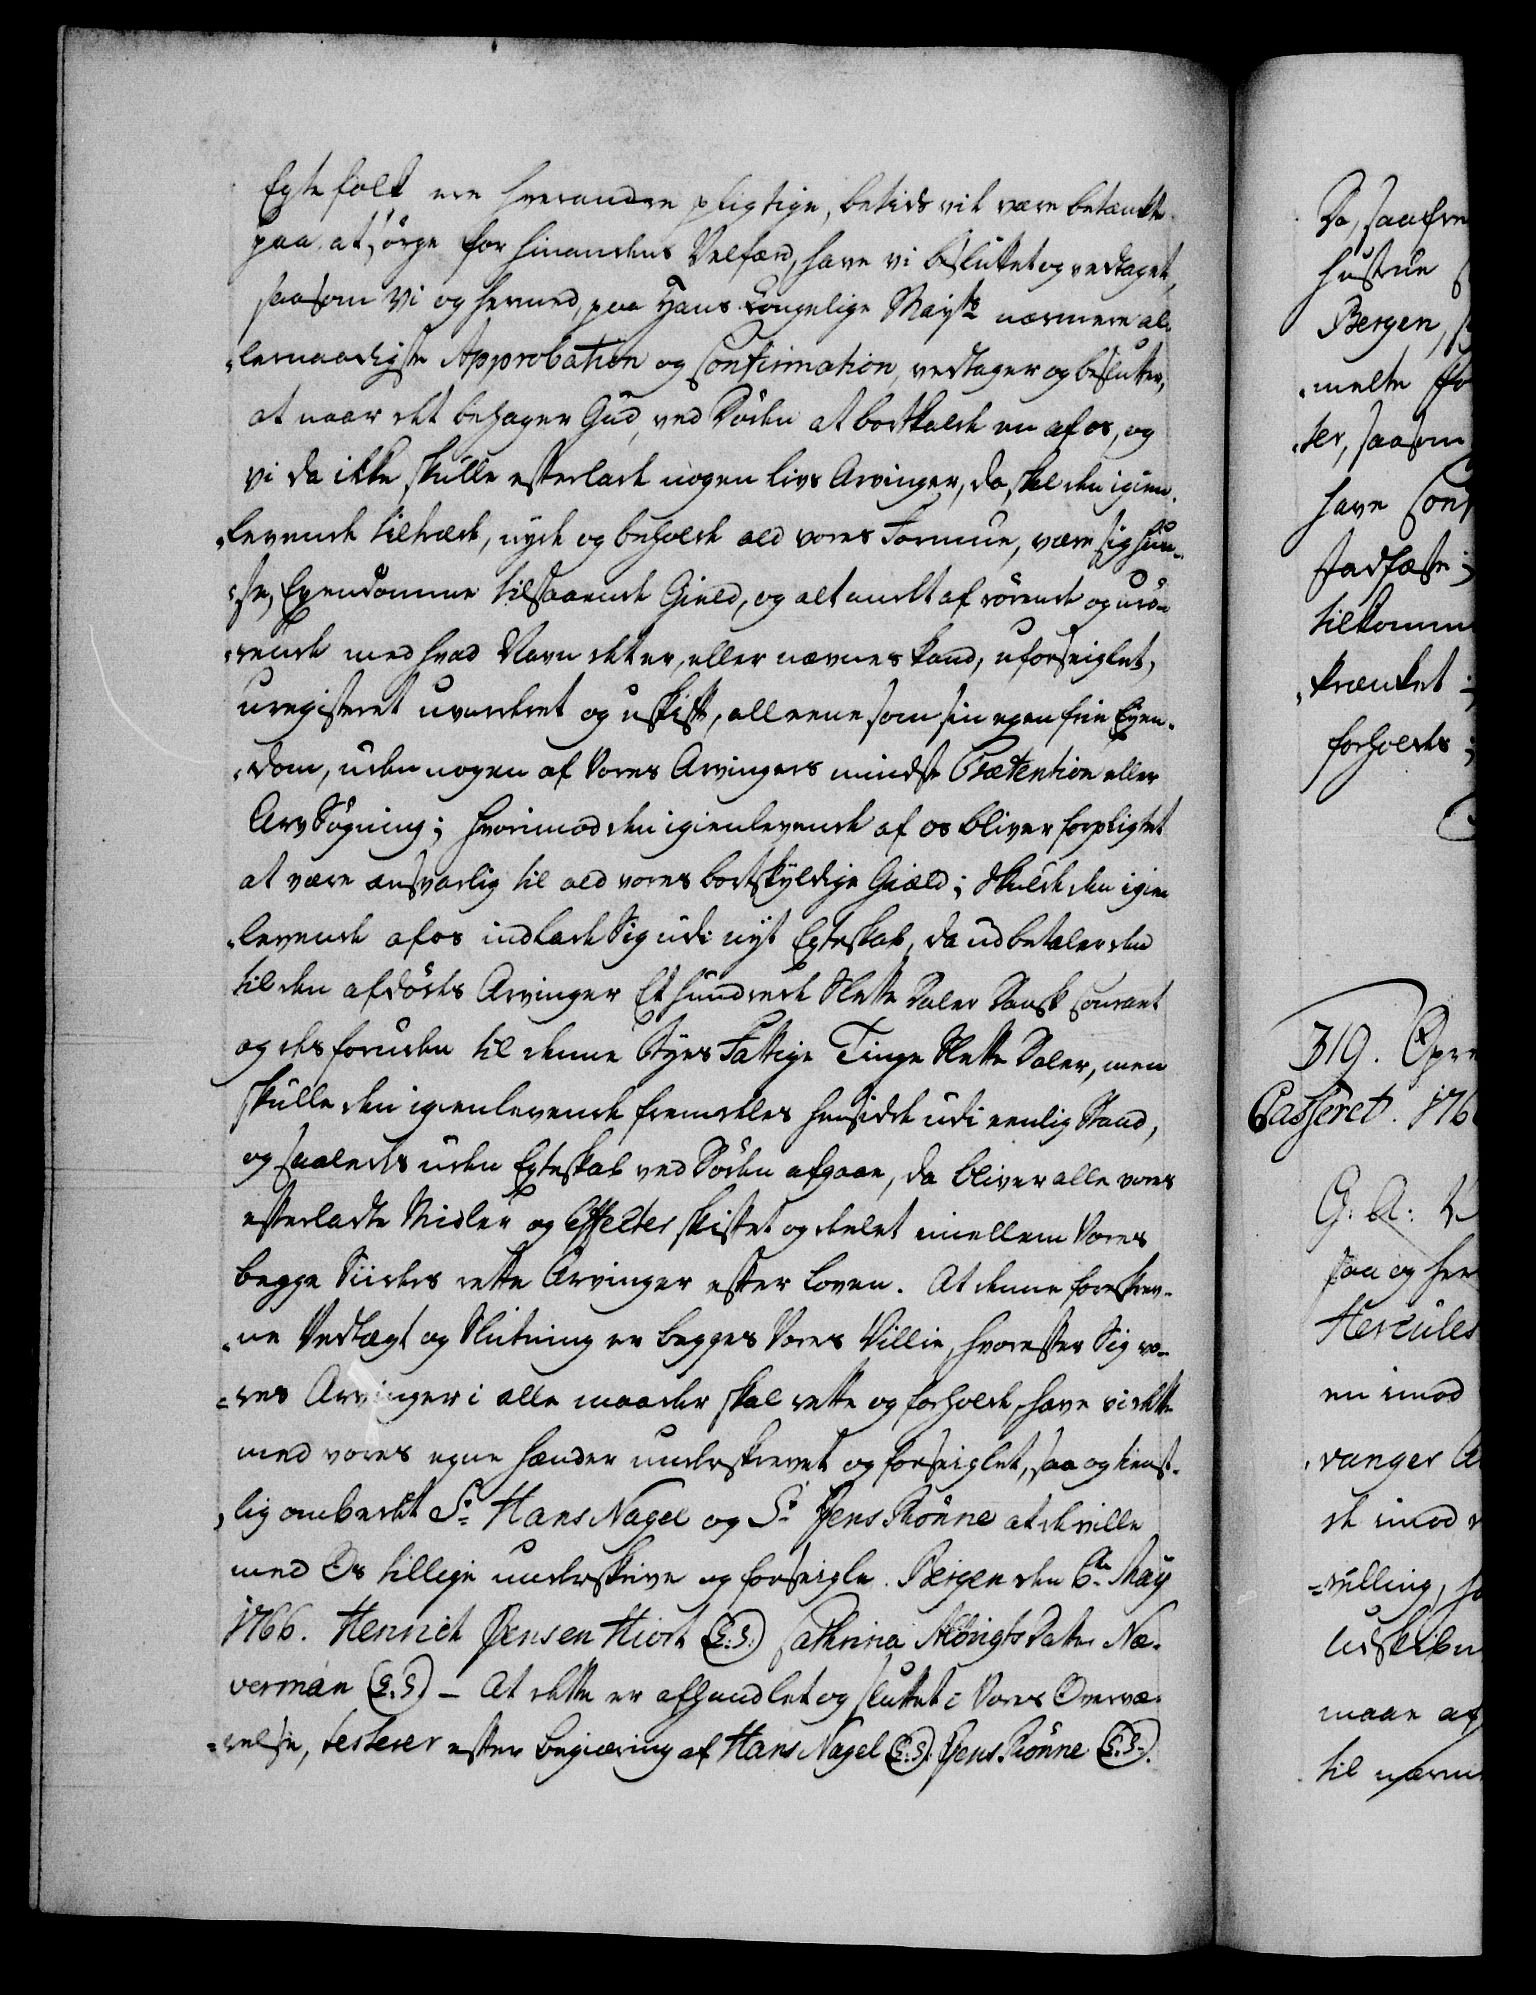 Egtefolk ere hverandre pligtige, betids vil være betænkte
paa at sørge for hinandens Velfærd, have vi besluttet og vedtaget,
saasom Vi og hermed, paa Hans Kongelige Mayts nærmere al-
lernaadigste Approbation og Confirmation, vedtager og beslutter,
at naar det behager Gud, ved Døden at bortkalde en af os, og
vi da ikke skulle efterlade nogen Livs Arvinger, da skal den igien-
levende tiltræde, nyde og beholde ald vores Formue, være sig Huu-
se, Eyendomme tilstaaende Gield, og alt andet af rørende og urø-
rende med hvad Navn det er, eller nævnes kand, uforseiglet,
uregisteret uvurderet og uskift, alleene som sin egen frie Eyen-
dom, uden nogen af Vores Arvingers mindste Prætention eller
Arv Søgning; hvorimod den igienlevende af os bliver forpligtet
at være ansvarlig til ald vores bortskyldige Giæld; Skulde den igien
levende af os indlade Sig udi nyt Egteskab, da udbetaler den
til den afdødes Arvinger Et hundrede Slette Daler Dansk Courant
og desforuden til denne Byes Fattige Tinge Slette Daler, men
skulle den igienlevende fremdeles hensidde udi eenlig Stand,
og saaledes uden Egteskab ved Døden afgaae, da bliver alle vores
efterladte Midler og Effecter skiftet og deelet imellem Vores
begge Siiders rette Arvinger efter Loven. At denne foreskrev-
ne Vedtægt og Slutning er begges Vores Villie, hvorefter Sig vo-
res Arvinger i alle maader skal rette og forholde, have vi dette
med vores egne Hænder underskrevet og forseiglet, saa og tienst-
lig ombedet Sr Hans Nagel og Sr Jens Rønne at de ville
med Os tillige underskrive og forseigle. Bergen den 6te May
1766. Henrich Jensen Hiort (L:S:) Cathrina Albrigts Datter Næ-
verman (L.S.) - At dette er afhandlet og sluttet i Vores Overvæ-
relse, testerer efter begiæring af Hans Nagel (L:S). Jens Rønne (L.S.).
Da, saafre
Hustrue
Bergen,
melte
ter, saasom
have Conf
stadfæste
tilkomm
krænket
forholdes
319. Opre
Passeret. 176
G. A:
saa og her
Hercules
en imod
vanger
de imod
rulling,
udskiben
maae af
til nærm